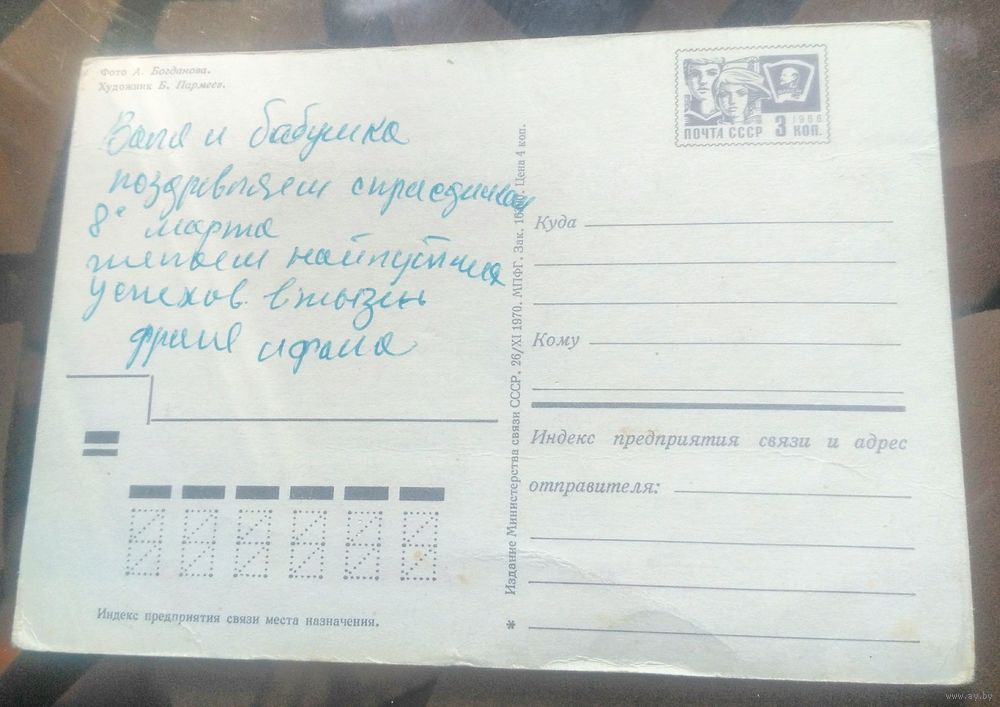 Фото А. Богданова.
Художник Б. Пармеев.
Валя и бабушка
поздравляем с празднеком
8е марта
желаем
успехов в жызни
ПОЧТА СССР 3 КОП.
1966
Издание Министерства связи СССР. 26/XI 1970. МПФГ. Зак. Цена 4 коп.
Куда
Кому
Индекс предприятия связи и адрес
отправителя:
Индекс предприятия связи места назначения.
*
www.ay.by